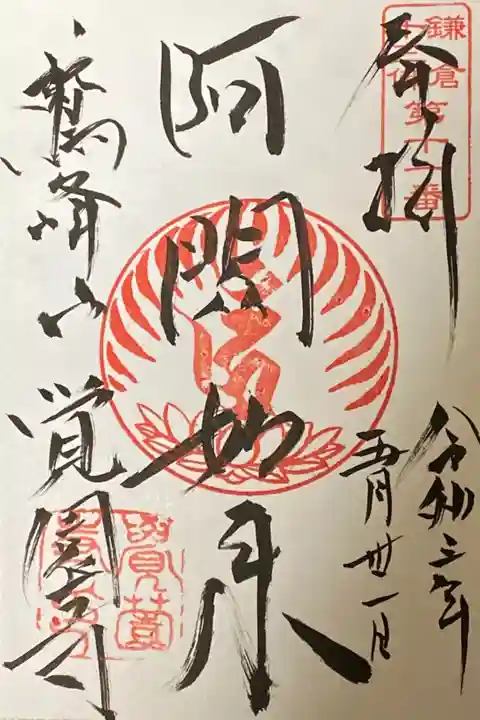 鎌倉
十三佛
第十一番
奉拝
令和三年
五月卅一日
阿閦如来
鷲峰山覚園寺
覺薗